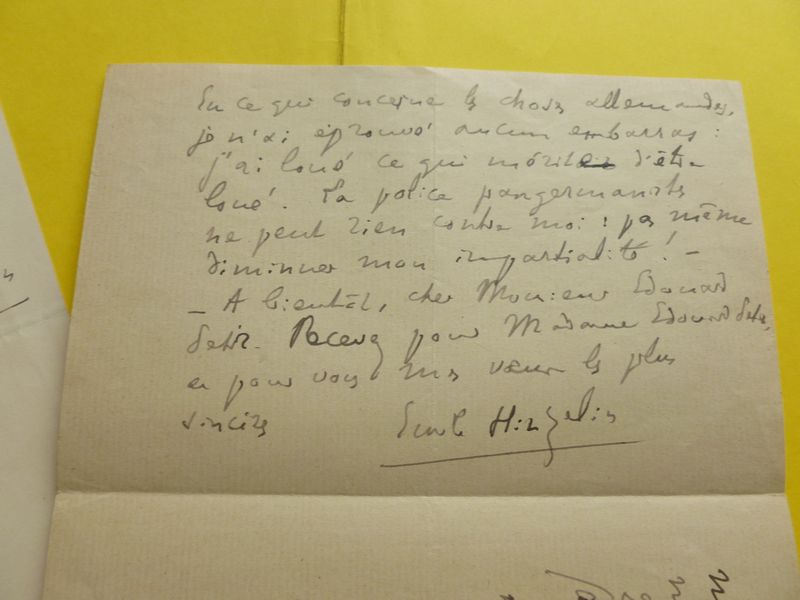 En ce qui concerne les choses allemandes,
je n'ai éprouvé aucun embarras :
j'ai loué ce qui mérite d'être
loué. La police pangermaniste
ne peut rien contre moi : pas même
diminuer mon impartialité ! –
– A bientôt, cher Monsieur Edouard
Recevez pour Madame Edouard
et pour vous mes vœux les plus
sincères
Emile Hinzelin